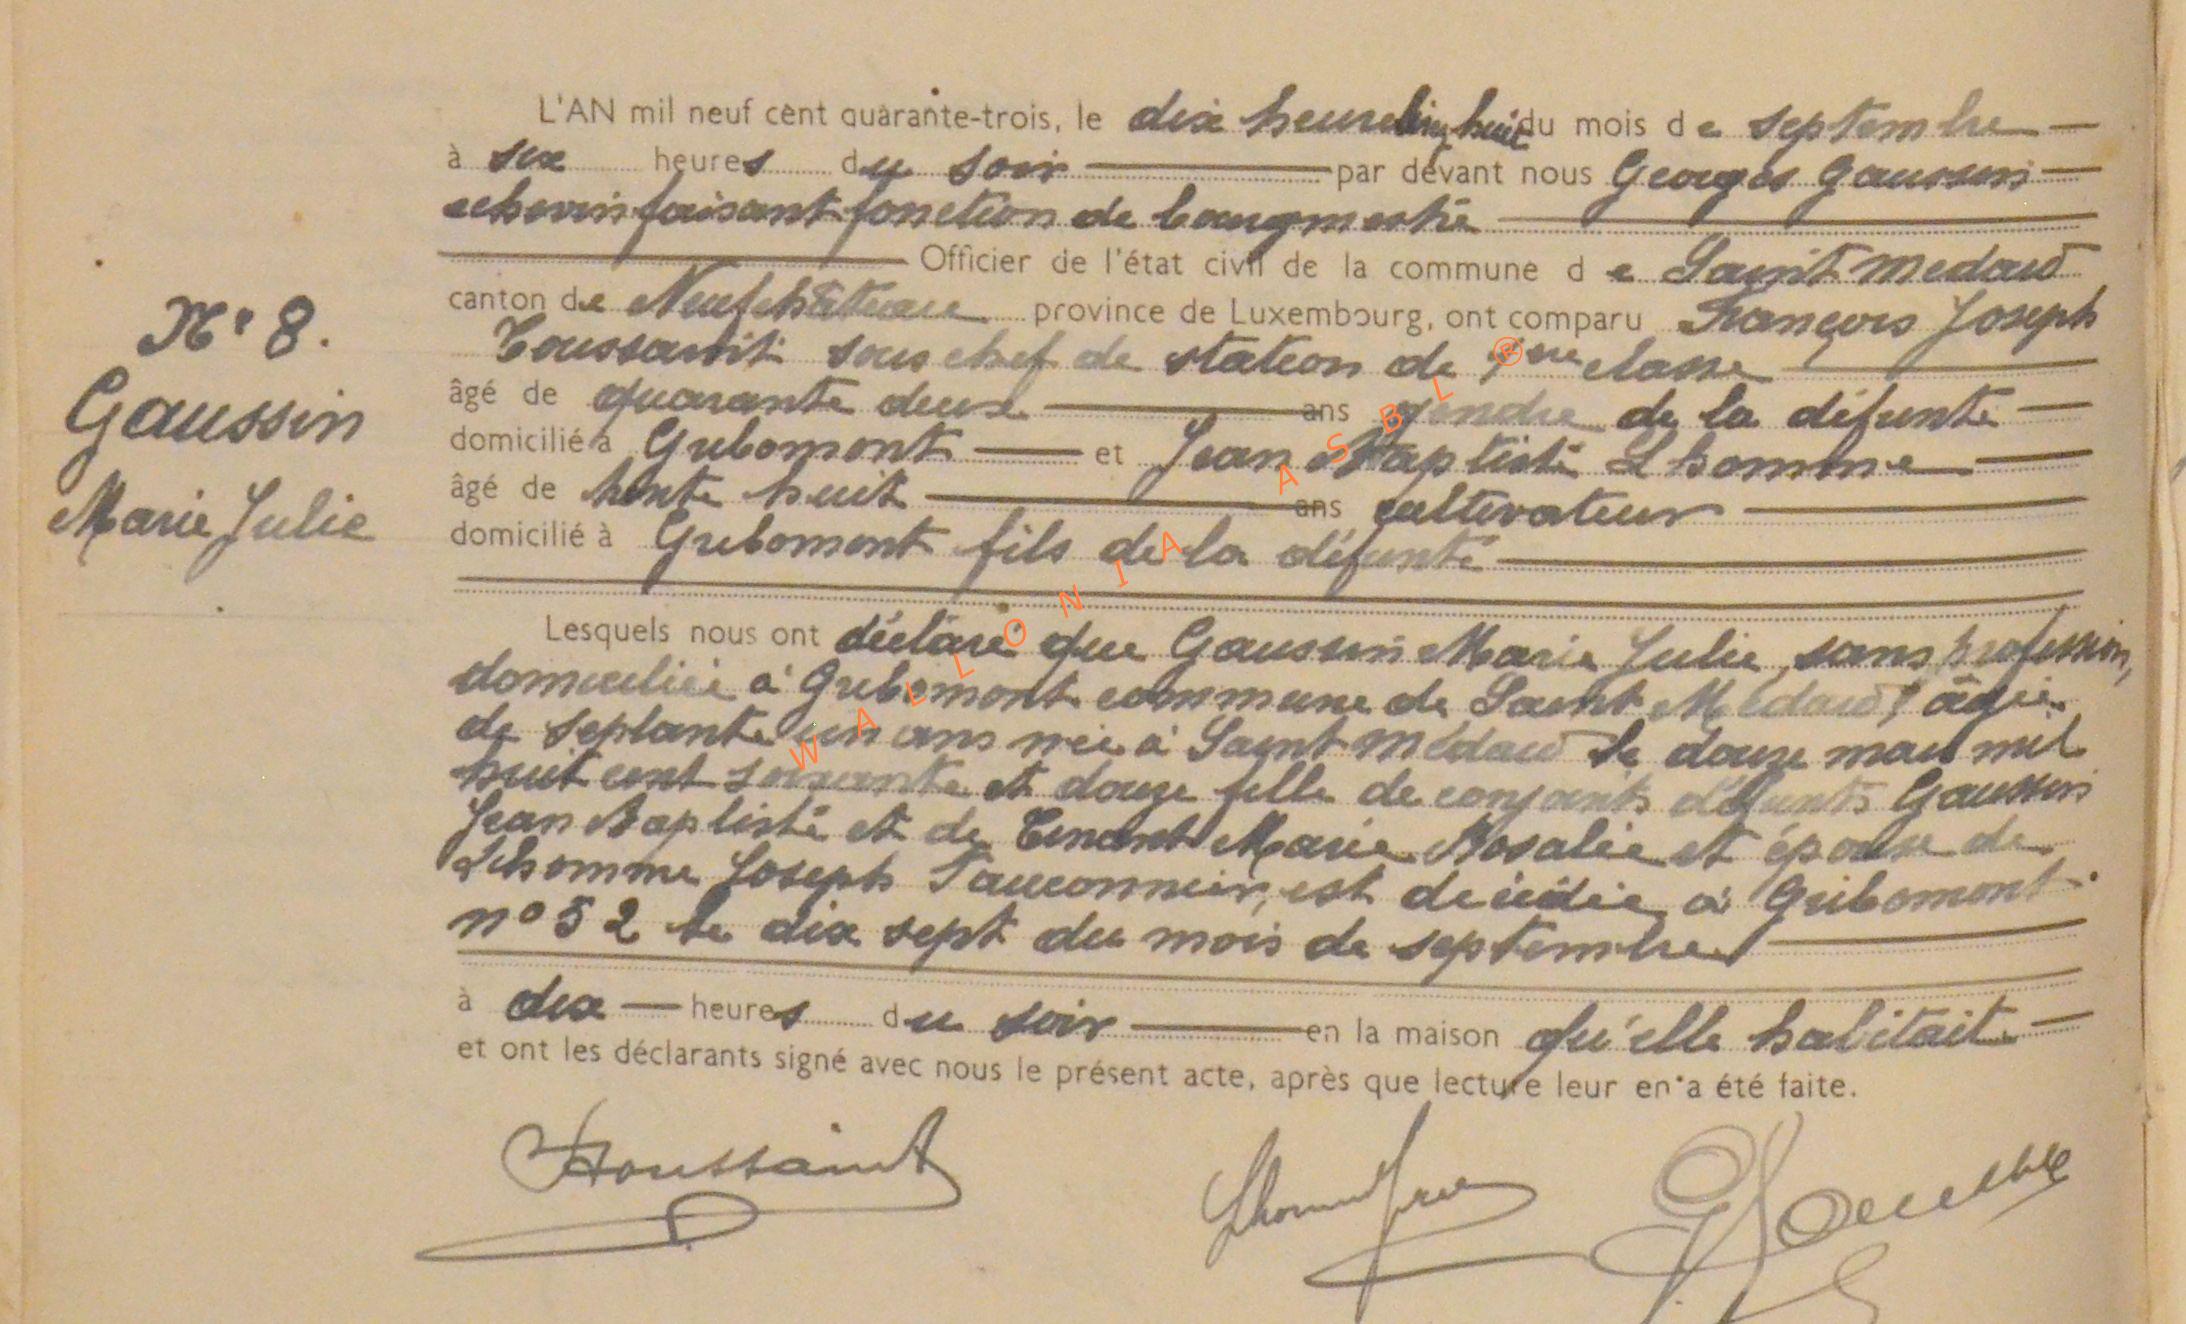 L'AN mil neuf cent quarante-trois, le dix huit du mois de septembre
à six heures du soir par devant nous Georges Gaussin
echevin faisant fonction de bourgmestre
Officier de l'état civil de la commune de Saint Medard
canton de Neufchâteau province de Luxembourg, ont comparu François Joseph
Toussaint sous chef de station de classe
âgé de quarante deux ans gendre de la défunte
domicilié à Gribomont et Jean Baptiste Lhomme
âgé de trente huit ans cultivateur
domicilié à Gribomont fils de la défunte
N° 8.
Gaussin
Marie Julie
Lesquels nous ont déclaré que Gaussin Marie Julie, sans profession,
domiciliée à Gribomont commune de Saint Médard, âgée
de septante un ans née à Saint Médard le douze mai mil
huit cent soixante et douze fille de conjoints défunts Gaussin
Jean Baptiste et de Tinant Marie Rosalie et épouse de
Lhomme Joseph Fauconnier, est décédée à Gribomont
n° 52 le dix sept du mois de septembre
à dix heures du soir en la maison qu'elle habitait
et ont les déclarants signé avec nous le présent acte, après que lecture leur en a été faite.
Toussaint
WALLONIA ASBL ®